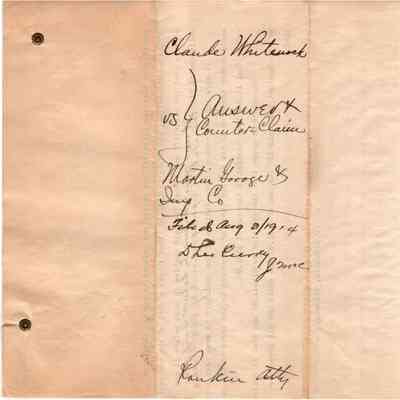 Claude Whitenock
vs Answer &
Counter-Claim
Martin Garage &
Imp Co
Filed Aug 3/1914
Rankin Atty